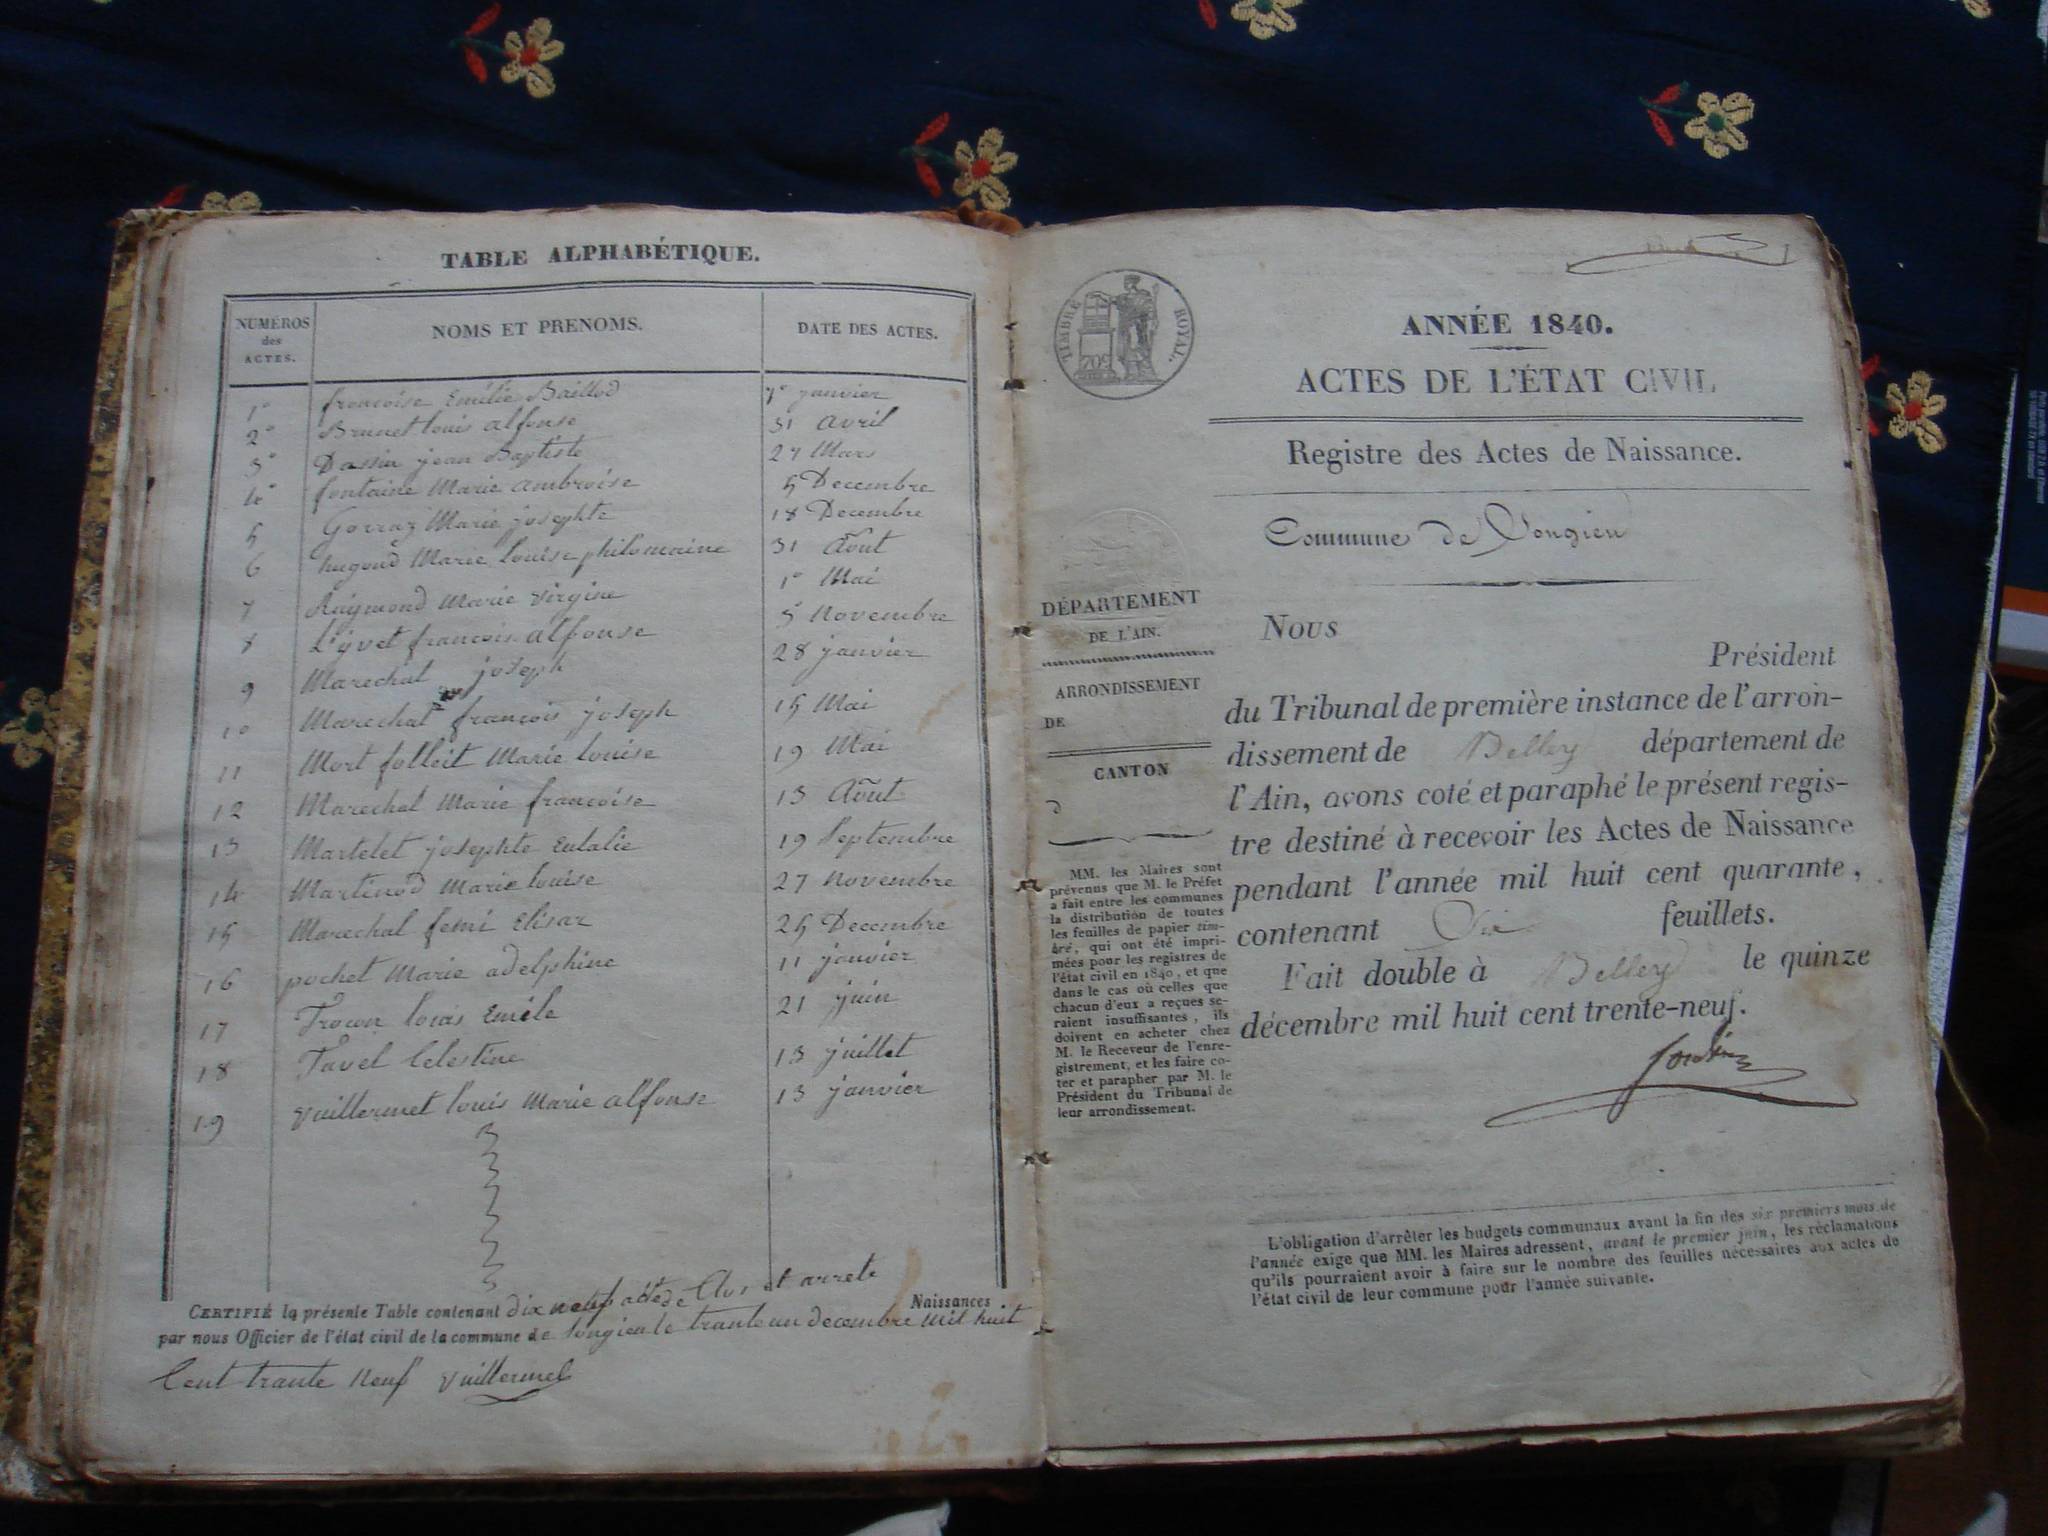 TABLE ALPHABÉTIQUE.
NUMÉROS des ACTES.
NOMS ET PRENOMS.
DATE DES ACTES.
1° francoise Emélie Baillod 7° janvier
2° Brunet louis alfonse 31 avril
3° Dassin jean Baptiste 27 Mars
4° fontaine Marie ambroise 5 Decembre
5 Gorraz Marie josephte 18 Decembre
6 hugond Marie louise philomaine 31 Août
7 Raymond Marie virgine 1° Mai
8 francois alfonse 5 novembre
9 Marechal joseph 28 janvier
10 Marechal francois joseph 15 Mai
11 Mort folleit Marie louise 19 Mai
12 Marechal Marie francoise 13 Août
13 Martelet josephte Eulalie 19 Septembre
14 Martinod Marie louise 27 novembre
15 Marechal femi Elisar 25 Decembre
16 pochet Marie adelphine 11 janvier
17 louis Emile 21 juin
18 Tavel Celestine 13 juillet
19 vuillermet louis Marie alfonse 13 janvier
CERTIFIÉ la présente Table contenant dix neuf acte de Naissances Clos et arrete
par nous Officier de l'état civil de la commune de Vongien le trante un decembre mil huit
Cent trante neuf vuillermet
TIMBRE ROYAL.
ANNÉE 1840.
ACTES DE L'ÉTAT CIVIL
Registre des Actes de Naissance.
Commune de Vongien
DÉPARTEMENT
DE L'AIN.
ARRONDISSEMENT
DE
CANTON
D
MM. les Maires sont
prévenus que M. le Préfet
a fait entre les communes
la distribution de toutes
les feuilles de papier tim-
bré, qui ont été impri-
mées pour les registres de
l'état civil en 1840, et que
dans le cas où celles que
chacun d'eux a reçues se-
raient insuffisantes, ils
doivent en acheter chez
M. le Receveur de l'enre-
gistrement, et les faire co-
ter et parapher par M. le
Président du Tribunal de
leur arrondissement.
NOUS
Président
du Tribunal de première instance de l'arron-
dissement de Belley département de
l'Ain, avons coté et paraphé le présent regis-
tre destiné à recevoir les Actes de Naissance
pendant l'année mil huit cent quarante,
contenant Six feuillets.
Fait double à Belley le quinze
décembre mil huit cent trente-neuf.
L'obligation d'arrêter les budgets communaux avant la fin des six premiers mois de
l'année exige que MM. les Maires adressent, avant le premier juin, les réclamations
qu'ils pourraient avoir à faire sur le nombre des feuilles nécessaires aux actes de
l'état civil de leur commune pour l'année suivante.